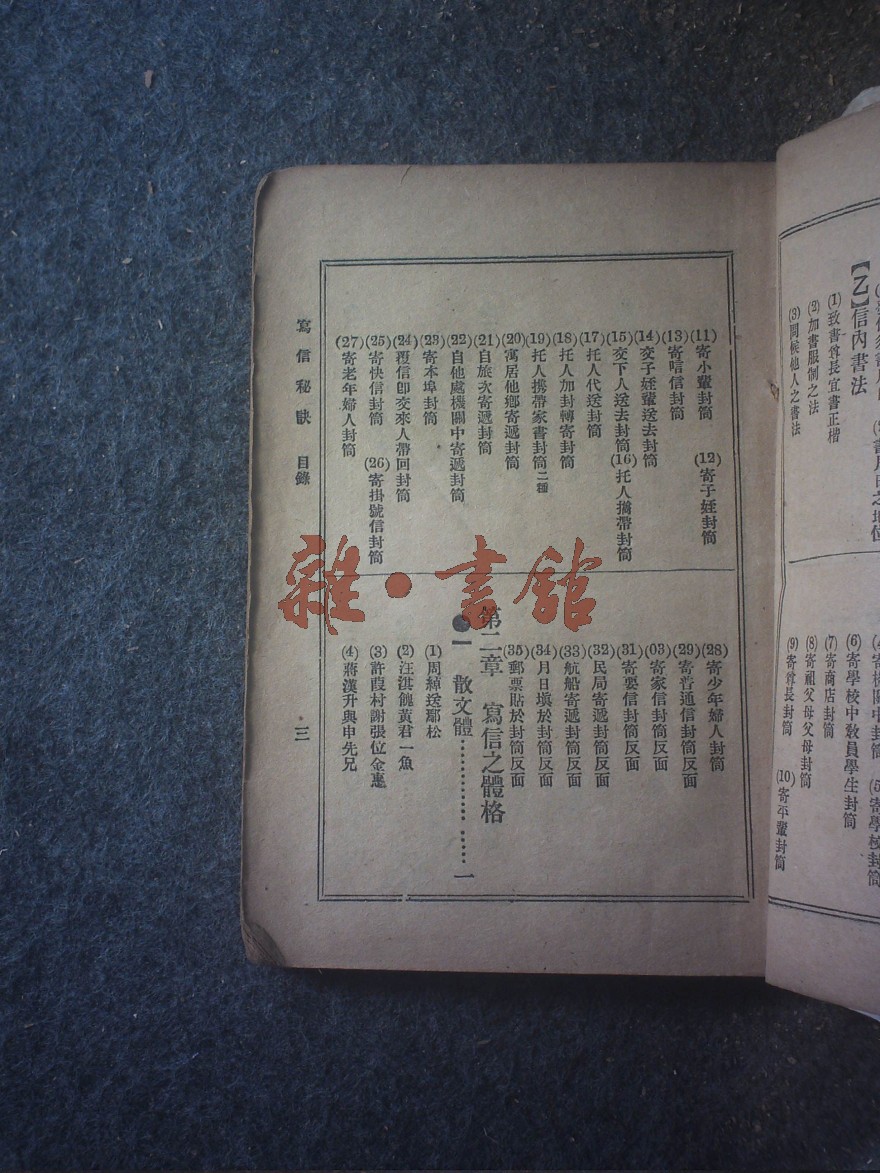 【乙】信內書法
(1)致書尊長宜書正楷
(2)加書服制之法
(3)問候他人之書法
(6)寄學校中敎員學生封筒
(7)寄商店封筒
(8)寄祖父母父母封筒
(9)寄尊長封筒
(10)寄平輩封筒
(11)寄小輩封筒
(12)寄子姪封筒
(13)寄唁信封筒
(14)交子姪輩送去封筒
(15)交下人送去封筒
(16)托人攜帶封筒
(17)托人代送封筒
(18)托人加封轉寄封筒
(19)托人携帶家書封筒二種
(20)寓居他鄉寄遞封筒
(21)自旅次寄遞封筒
(22)自他處機關中寄遞封筒
(23)寄本埠封筒
(24)覆信卽交來人帶回封筒
(25)寄快信封筒
(26)寄掛號信封筒
(27)寄老年婦人封筒
(28)寄少年婦人封筒
(29)寄普通信封筒反面
(03)寄家信封筒反面
(31)寄要信封筒反面
(32)民局寄遞封筒反面
(33)航船寄遞封筒反面
(34)月日塡於封筒反面
(35)郵票貼於封筒反面
第二章 寫信之體格
一 散文體………………一
(1)周綽送鄢松
(2)汪淇餽黃君一魚
(3)許葭村謝張位金惠
(4)蔣漢升與申先兄
寫信秘訣 目錄
三
雜·書館